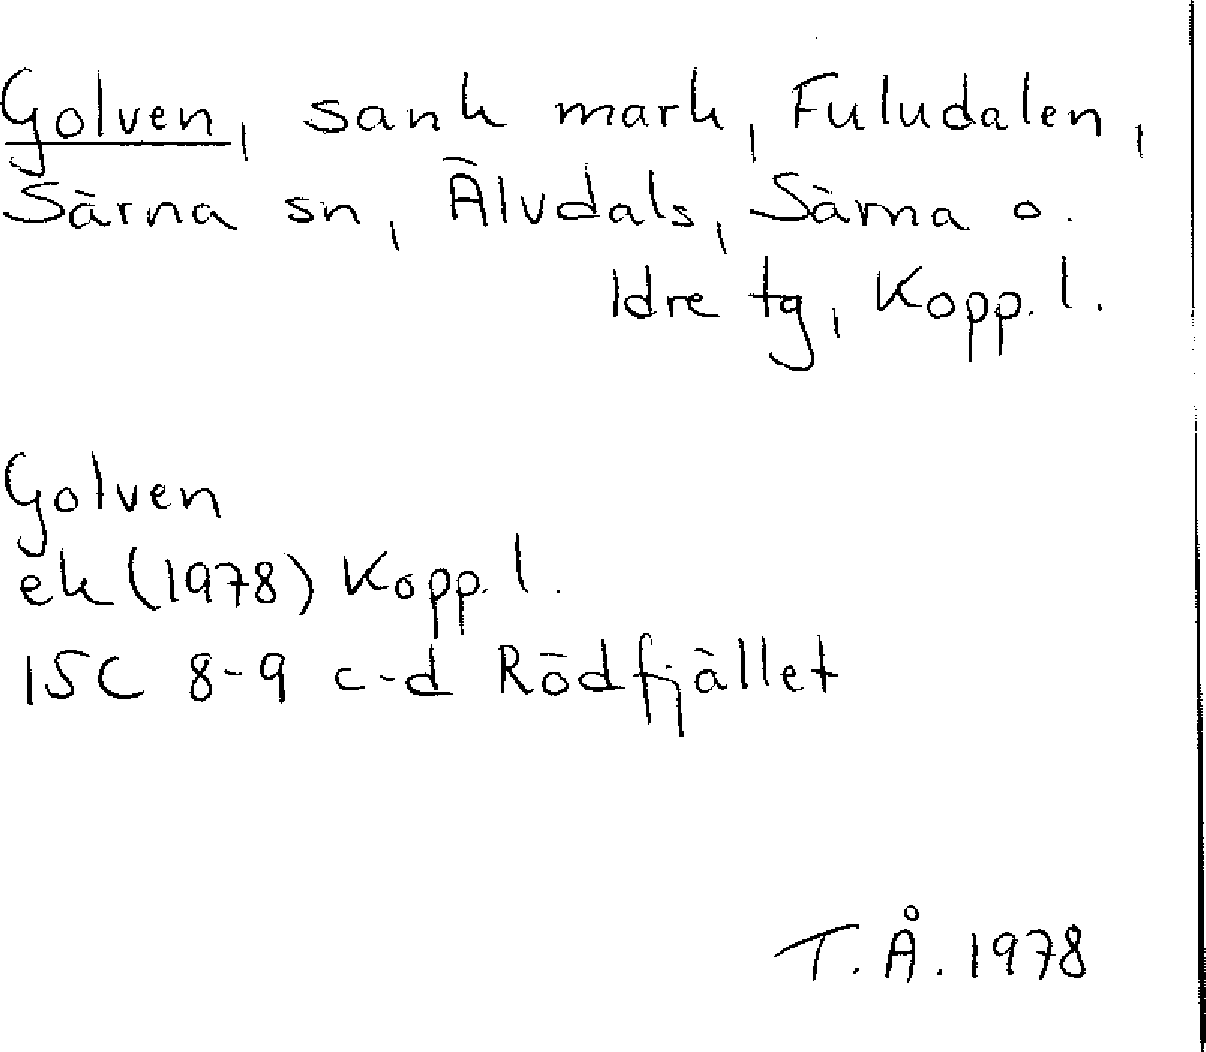 Golven, sank mark, Fuludalen,
Särna sn, Älvdals, Särna o.
Idre tg, Kopp. l.
Golven
ek (1978) Kopp. l.
15C 8-9 c-d Rödfjället
T. Å. 1978